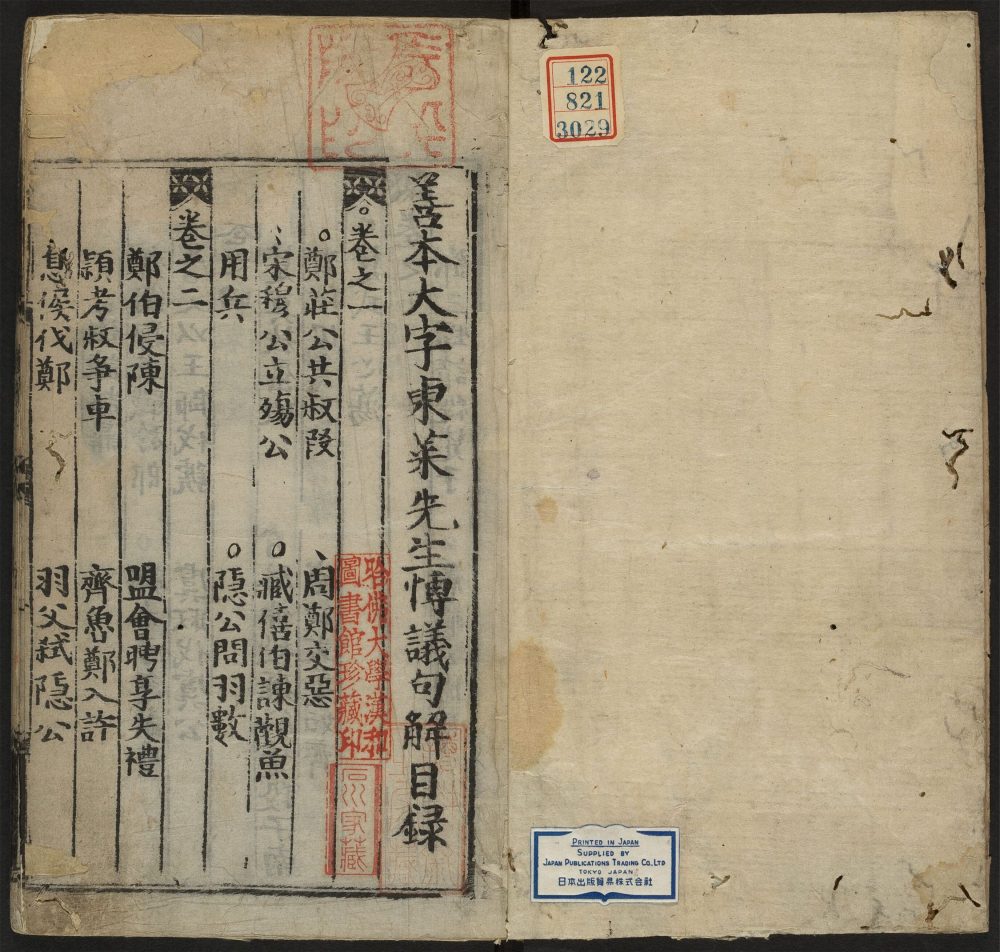 善本大字東萊先生博議句解目録
卷之一
鄭莊公共叔段 周鄭交惡
宋穆公立殤公 臧僖伯諫觀魚
用兵 隱公問羽數
卷之二
鄭伯侵陳 盟會聘享失禮
頴考叔爭車 齊魯鄭入許
息侯伐鄭 羽父弑隱公
哈佛大學漢和
圖書館珍藏印
石川家藏
122
821
3029
PRINTED IN JAPAN
SUPPLIED BY
JAPAN PUBLICATIONS TRADING CO., LTD
TOKYO JAPAN
日本出版貿易株式会社